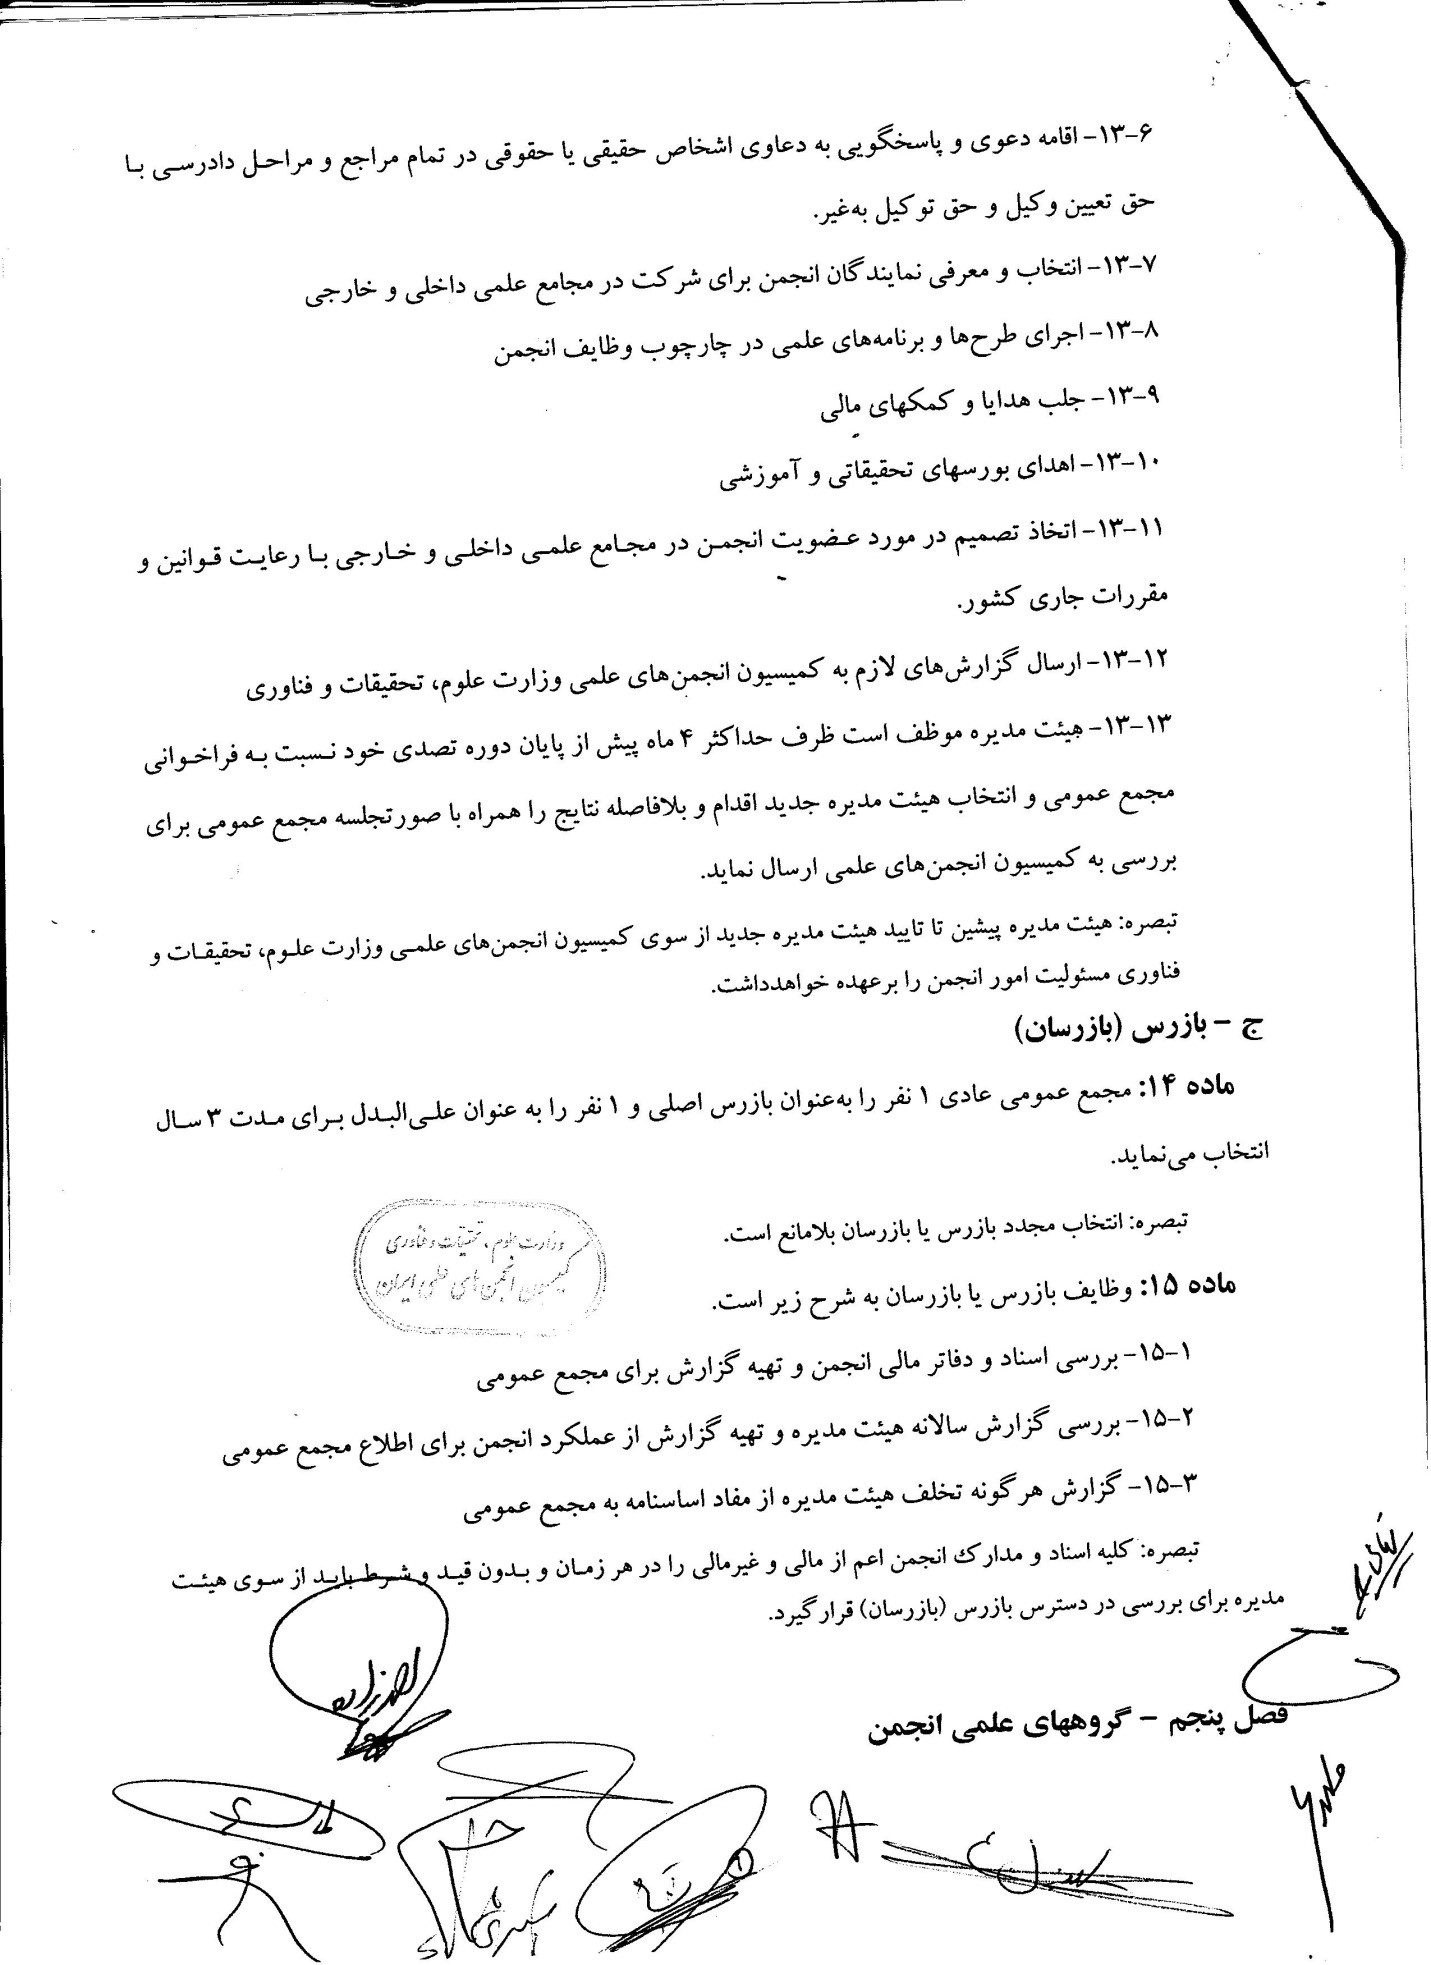 ۱۳-۶- اقامه دعوی و پاسخگویی به دعاوی اشخاص حقیقی یا حقوقی در تمام مراجع و مراحل دادرسی با
حق تعیین وکیل و حق توکیل به‌غیر.
۱۳-۷- انتخاب و معرفی نمایندگان انجمن برای شرکت در مجامع علمی داخلی و خارجی
۱۳-۸- اجرای طرح‌ها و برنامه‌های علمی در چارچوب وظایف انجمن
۱۳-۹- جلب هدایا و کمکهای مالی
۱۳-۱۰- اهدای بورسهای تحقیقاتی و آموزشی
۱۳-۱۱- اتخاذ تصمیم در مورد عضویت انجمن در مجامع علمی داخلی و خارجی با رعایت قوانین و
مقررات جاری کشور.
۱۳-۱۲- ارسال گزارش‌های لازم به کمیسیون انجمن‌های علمی وزارت علوم، تحقیقات و فناوری
۱۳-۱۳- هیئت مدیره موظف است ظرف حداکثر ۴ ماه پیش از پایان دوره تصدی خود نسبت به فراخوانی
مجمع عمومی و انتخاب هیئت مدیره جدید اقدام و بلافاصله نتایج را همراه با صورتجلسه مجمع عمومی برای
بررسی به کمیسیون انجمن‌های علمی ارسال نماید.
تبصره: هیئت مدیره پیشین تا تایید هیئت مدیره جدید از سوی کمیسیون انجمن‌های علمی وزارت علوم، تحقیقات و
فناوری مسئولیت امور انجمن را برعهده خواهدداشت.
ج - بازرس (بازرسان)
ماده ۱۴: مجمع عمومی عادی ۱ نفر را به‌عنوان بازرس اصلی و ۱ نفر را به عنوان علی‌البدل برای مدت ۳ سال
انتخاب می‌نماید.
تبصره: انتخاب مجدد بازرس یا بازرسان بلامانع است.
وزارت علوم، تحقیقات و فناوری
کمیسیون انجمن های علمی ایران
ماده ۱۵: وظایف بازرس یا بازرسان به شرح زیر است.
۱۵-۱- بررسی اسناد و دفاتر مالی انجمن و تهیه گزارش برای مجمع عمومی
۱۵-۲- بررسی گزارش سالانه هیئت مدیره و تهیه گزارش از عملکرد انجمن برای اطلاع مجمع عمومی
۱۵-۳- گزارش هرگونه تخلف هیئت مدیره از مفاد اساسنامه به مجمع عمومی
تبصره: کلیه اسناد و مدارک انجمن اعم از مالی و غیرمالی را در هر زمان و بدون قید و شرط باید از سوی هیئت
مدیره برای بررسی در دسترس بازرس (بازرسان) قرار گیرد.
فصل پنجم - گروههای علمی انجمن